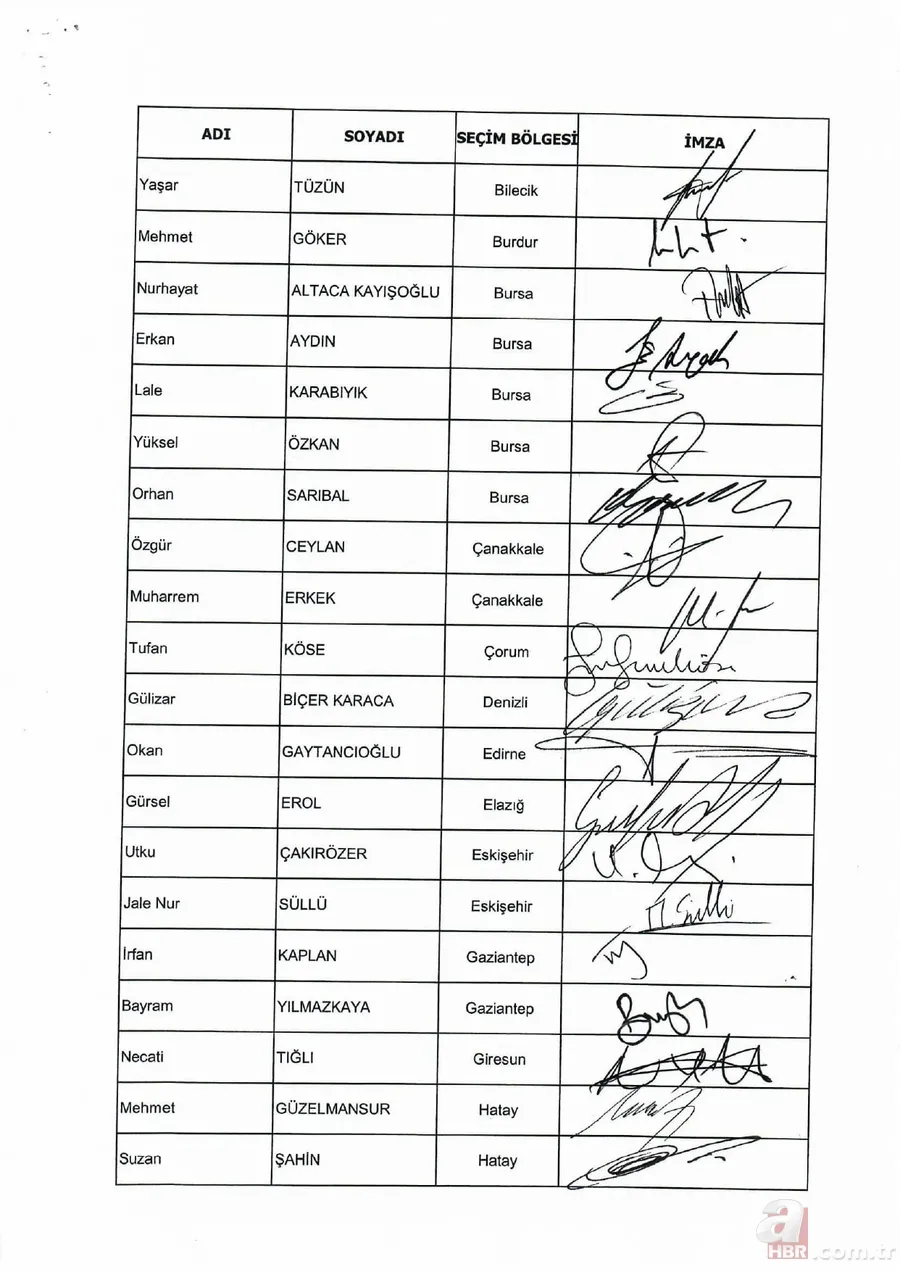 ADI SOYADI SEÇİM BÖLGESİ İMZA
Yaşar TÜZÜN Bilecik
Mehmet GÖKER Burdur
Nurhayat ALTACA KAYIŞOĞLU Bursa
Erkan AYDIN Bursa
Lale KARABIYIK Bursa
Yüksel ÖZKAN Bursa
Orhan SARIBAL Bursa
Özgür CEYLAN Çanakkale
Muharrem ERKEK Çanakkale
Tufan KÖSE Çorum
Gülizar BİÇER KARACA Denizli
Okan GAYTANCIOĞLU Edirne
Gürsel EROL Elazığ
Utku ÇAKIRÖZER Eskişehir
Jale Nur SÜLLÜ Eskişehir
İrfan KAPLAN Gaziantep
Bayram YILMAZKAYA Gaziantep
Necati TIĞLI Giresun
Mehmet GÜZELMANSUR Hatay
Suzan ŞAHİN Hatay
a HBR .com.tr